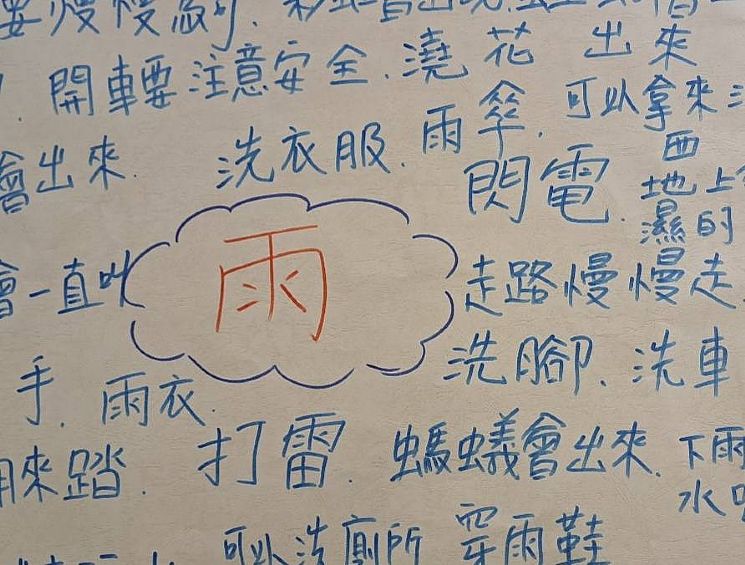 要慢慢剎.
開車要注意安全.澆花 出來
會出來. 洗衣服.雨傘.可以拿來
閃電.
西
地上
濕的
雨
會一直叫
走路慢慢走
洗腳.洗車
手.雨衣.
來踏.打雷.螞蟻會出來.下雨
水
可以洗廁所 穿雨鞋